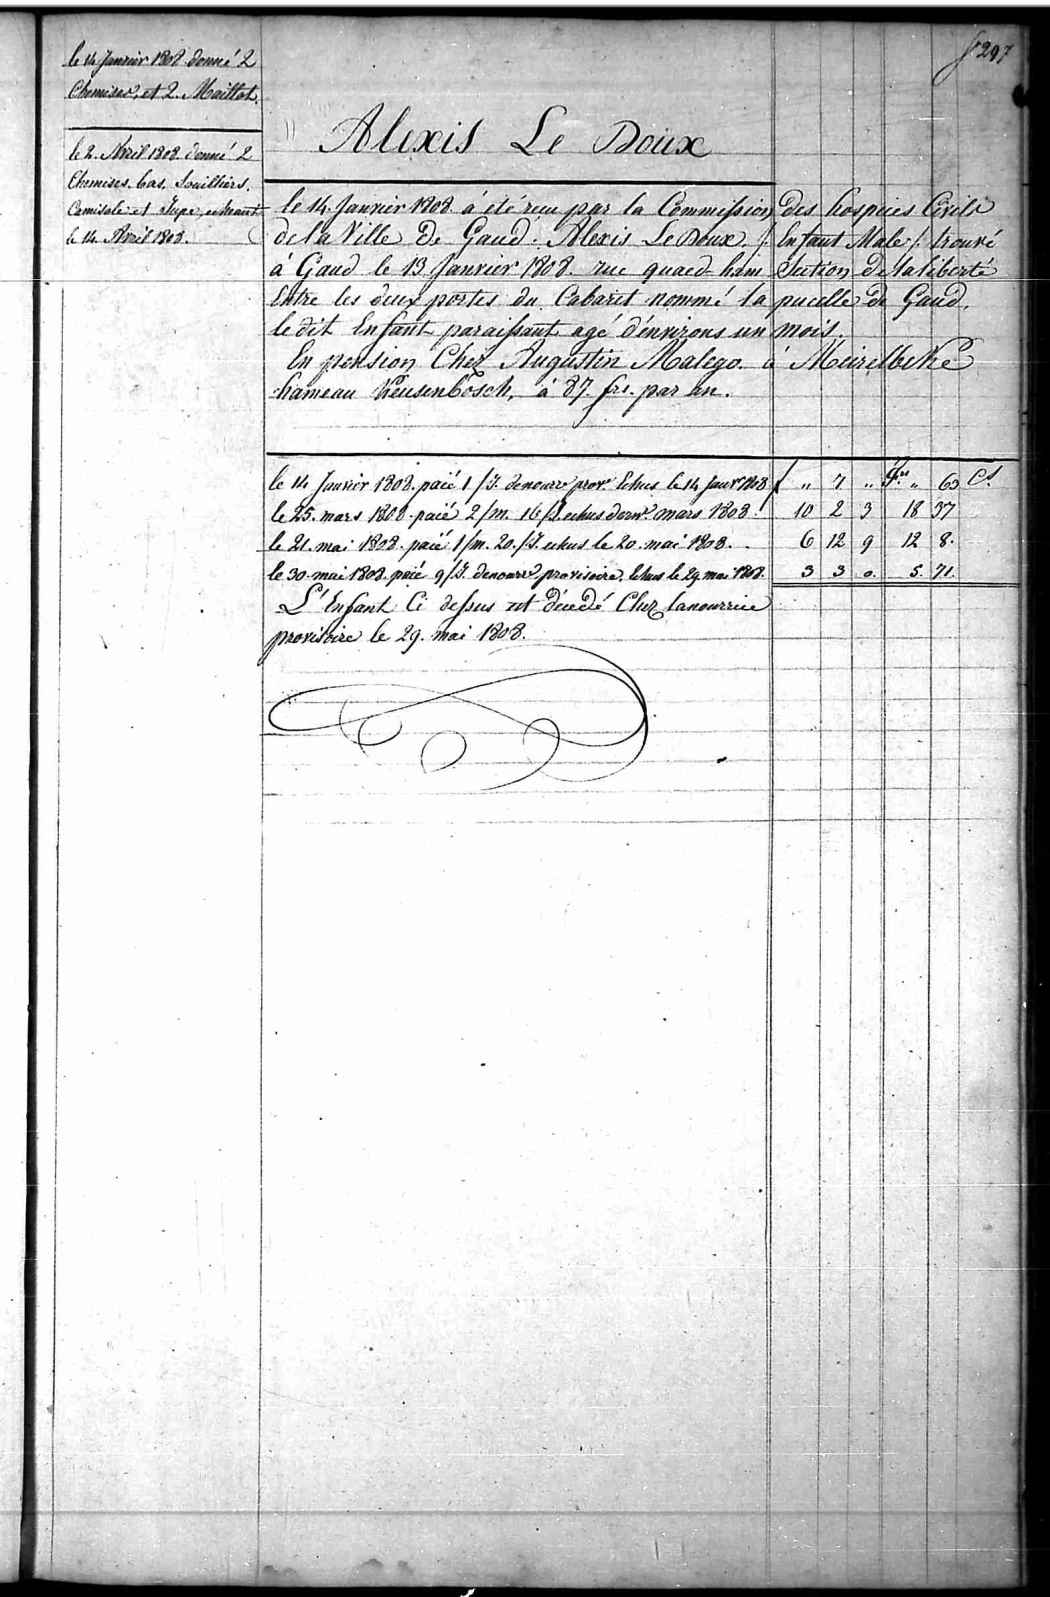 fo 297
le 14 Janvier 1808 donné 2
Chemises, et 2. Maillot.
le 2. Avril 1808. donné 2
Chemises. bas. Souilliers.
Camisole et Jupe, echeant
le 14 Avril 1808.
Alexis Le Doux
le 14. Janvier 1808 à été reçu par la Commission des hospices Civils
de la Ville De Gand. Alexis Le Doux. /: Enfant Male :/ trouvé
à Gand le 13 Janvier 1808. rue quaed-ham Section de la liberté
Entre les deux portes du Cabaret nommé la pucelle de Gand,
le dit Enfant paraissant agé d'environs un mois.
En pension Chez Augustin Malego. a Meirelbeke
hameau Keusenbosch, à 87. frs. par an.
le 14 Janvier 1808. paié 1/J. denourre provre. Echus le 14 Janvr 1808 f „ 7 „ Frs „ 63 Cs
le 25. mars 1808. paié 2/m. 16/J echus dernr. mars 1808. 10 2 3 18 37
le 21. mai 1808. paié 1/m. 20./J. echus le 20. mai 1808. . 6 12 9 12 8.
le 30. mai 1808. paié 9/J. denourre provisoire. Echus le 29. mai 1808. 3 3 0. 5. 71.
L'Enfant Ci dessus est décedé Chez lanourrice
provisoire le 29. mai 1808.